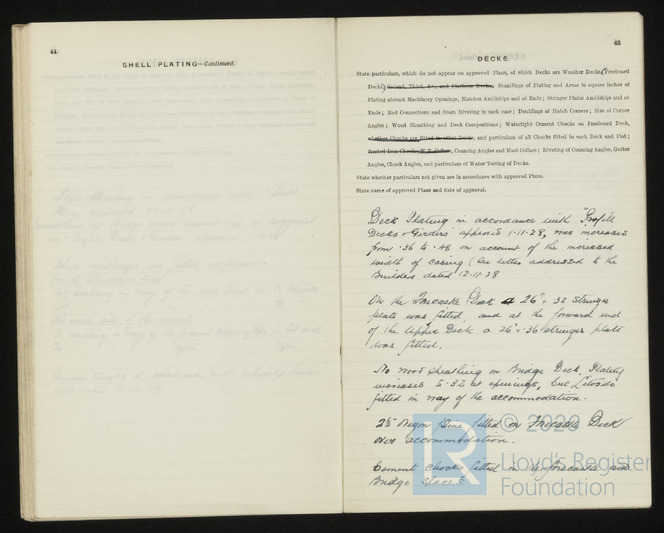 44
SHELL PLATING—Continued.
45
DECKS.
State particulars, which do not appear on approved Plans, of which Decks are Weather Decks, Freeboard
Decks, Second, Third, &c., and Platform Decks, Scantlings of Plating and Areas in square inches of
Plating abreast Machinery Openings, Hatches Amidships and at Ends; Stringer Plates Amidships and at
Ends; End Connections and Seam Riveting in each case; Doublings at Hatch Corners; Size of Corner
Angles; Wood Sheathing and Deck Compositions; Watertight Cement Chocks on Freeboard Deck,
whether Chocks are fitted in other Decks, and particulars of all Chocks fitted in each Deck and Flat;
Coaming Angles and Mast Collars; Riveting of Coaming Angles, Gutter
Angles, Chock Angles, and particulars of Water Testing of Decks.
State whether particulars not given are in accordance with approved Plans.
State name of approved Plans and date of approval.
Deck Plating in accordance with "Profile
Decks & Girders" approved 1-11-28, was increased
from .36 to .48 on account of the increased
width of casing (See letter addressed to the
Builders dated 12-11-28
On the Forecastle Deck a 26" x .32 stringer
plate was fitted, and at the forward end
of the Upper Deck a 26" x .36 stringer plate
was fitted.
No wood sheathing on Bridge Deck. Plating
increased to .32 at openings, but Litosilo
fitted in way of the accommodation.
2½" Oregon Pine fitted on Forecastle Deck
over accommodation.
Cement chocks fitted in the forecastle and
Bridge spaces.
© 2020
Lloyd's Register
Foundation